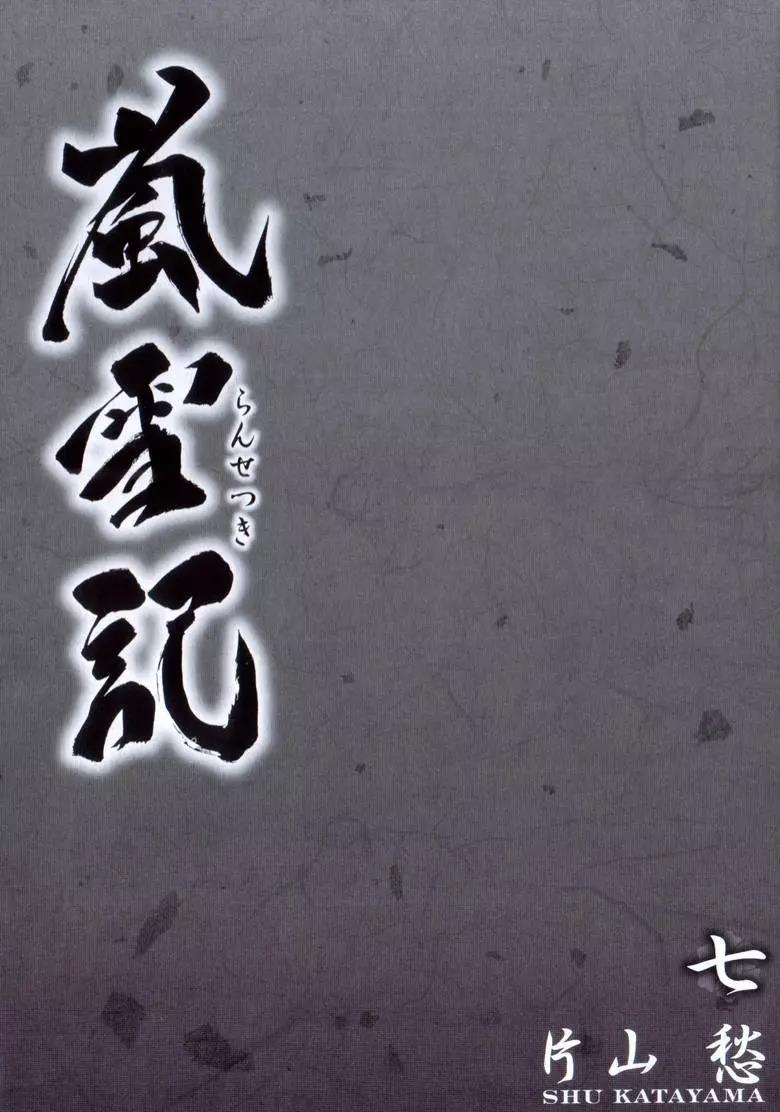 嵐雪記
らんせつき
七
片山 愁
SHU KATAYAMA